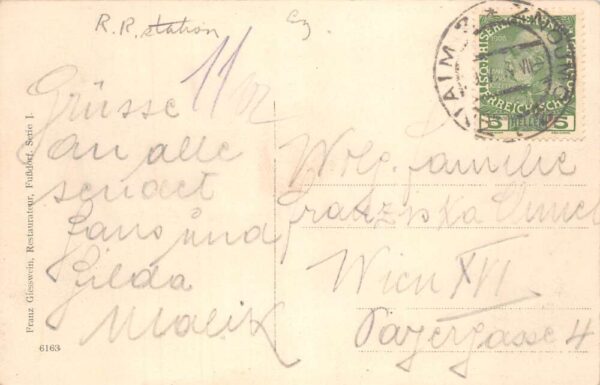 R.R. station
Cz
11
Grüsse
an alle
sendet
Hans und
Gilda
Malik
Wolg. Familie
Franziska
Wien XVI
4
Franz Giesswein, Restaurateur, Fußdorf, Serie I.
6163
1908
5 HELLER 5
ZNAIM 2 * ZNOJMO